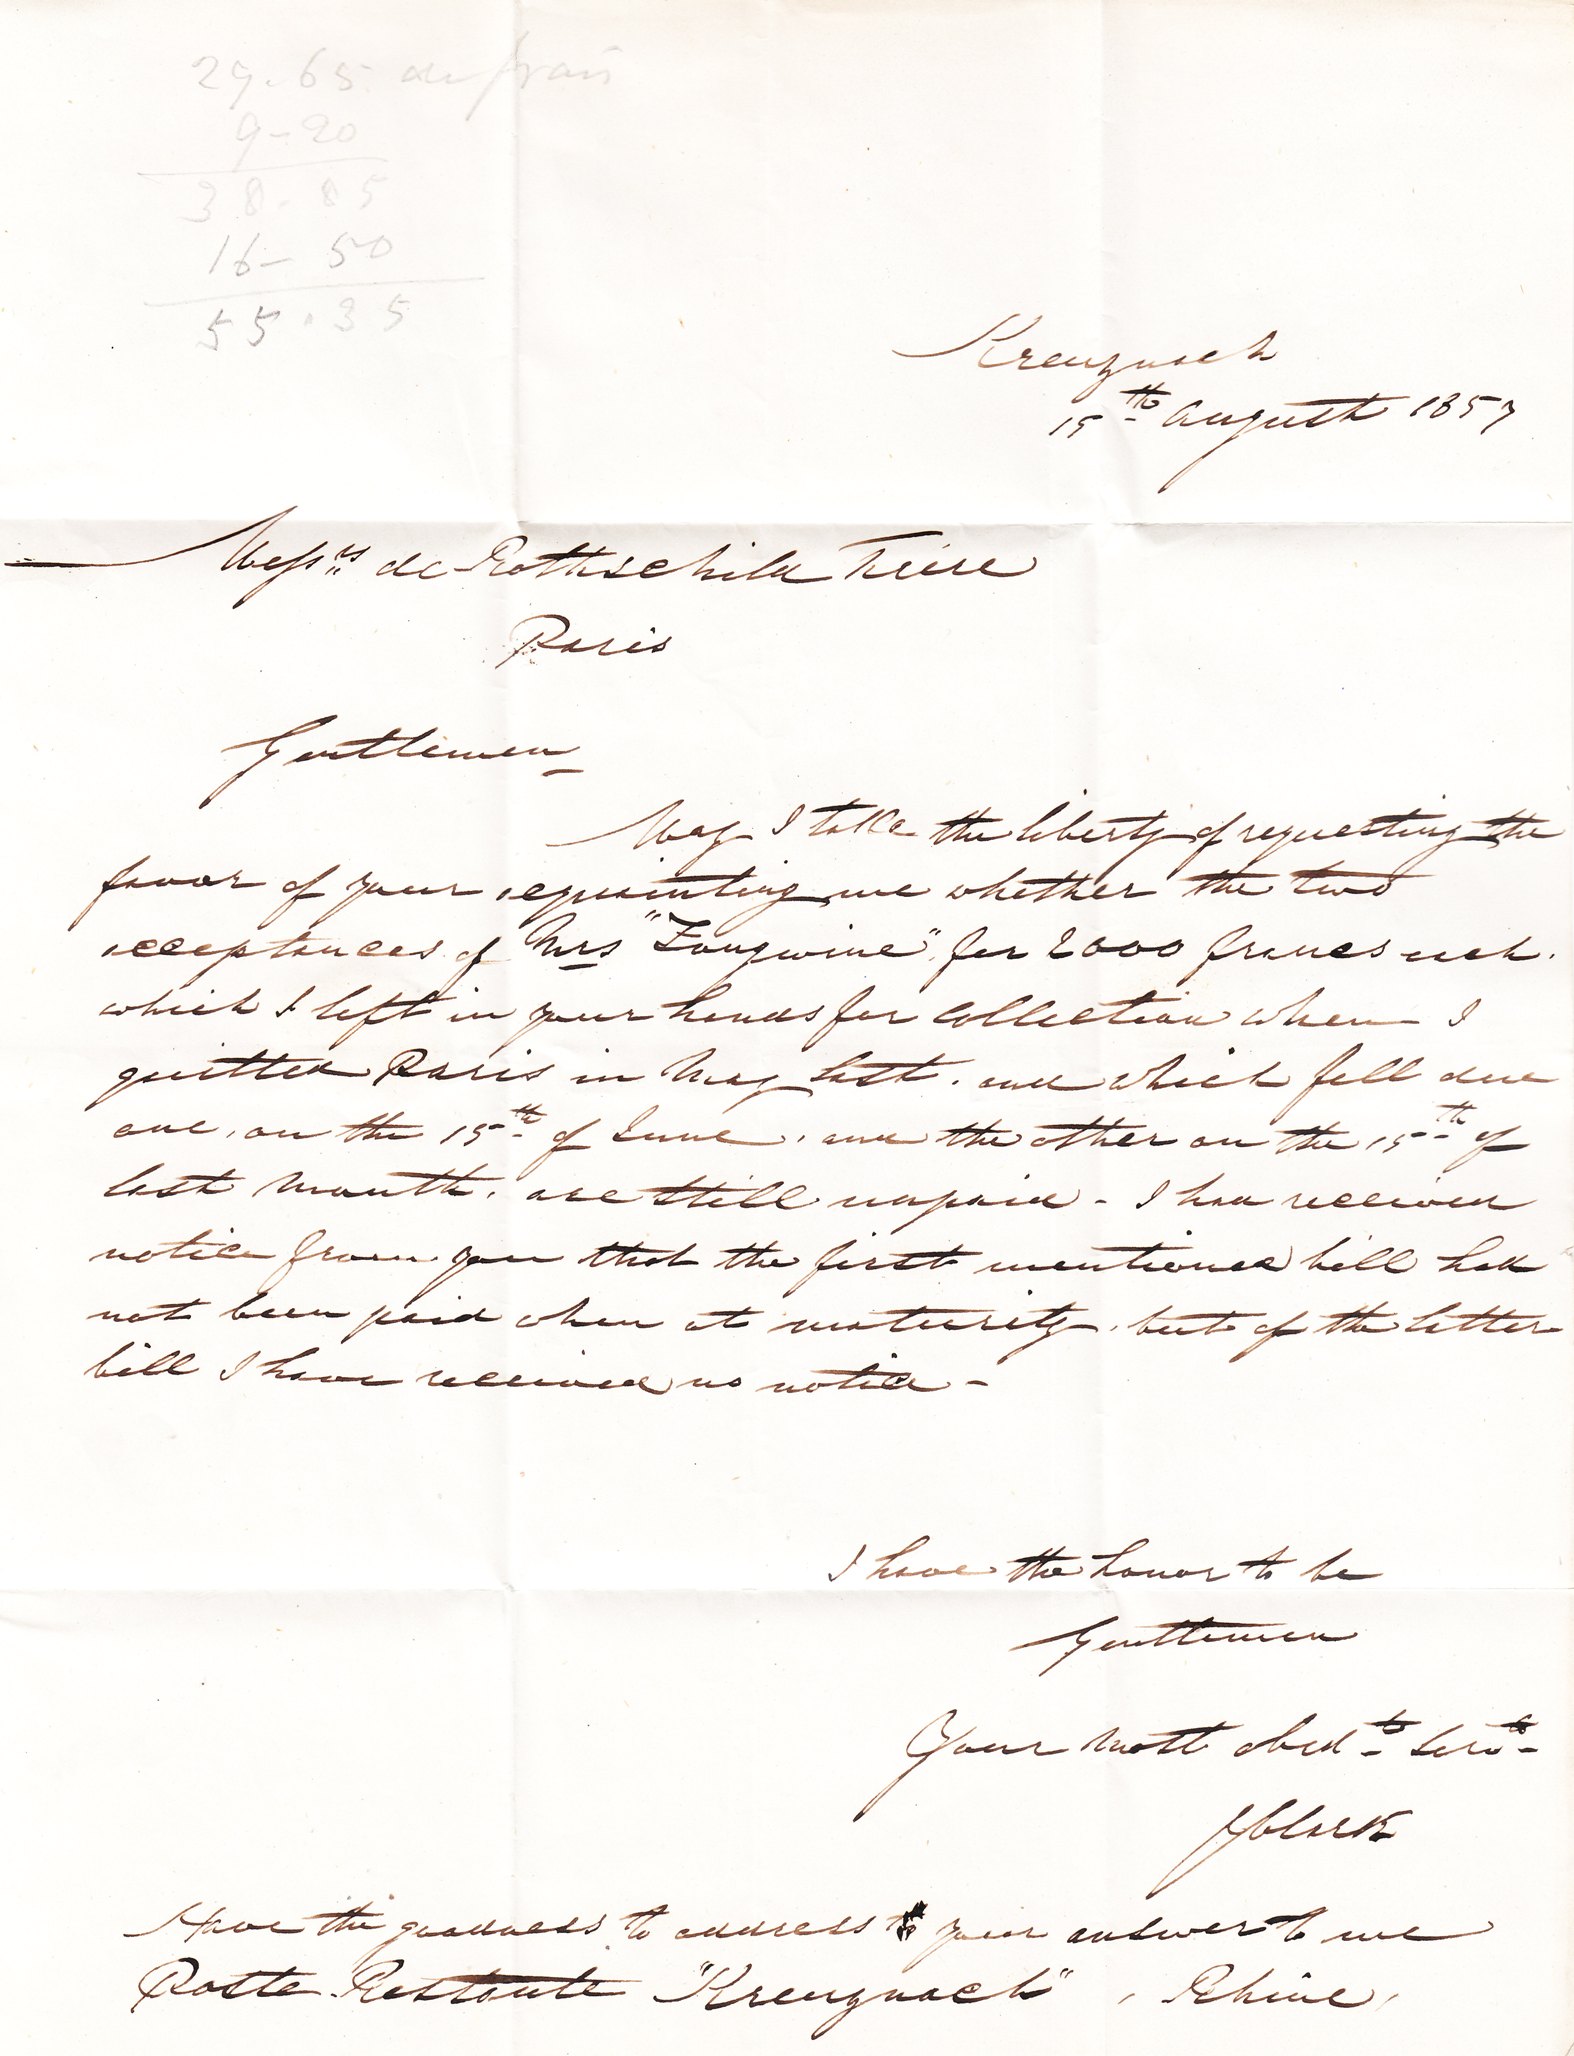 29.65 de frais
9-20
38.85
16-50
55.35
Kreuznach
15th August 1857
Messrs de Rothschild Frère
Paris
Gentlemen
May I take the liberty of requesting the
favor of your acquainting me whether the two
acceptances of Mrs for 2000 francs each.
which I left in your hands for collection when I
quitted Paris in May last. and which fell due
one, on the 15th of June, and the other on the 15th of
last Month, are still unpaid - I had received
notice from you that the first mentioned bill had
not been paid when at maturity, but of the latter
bill I have received no notice -
I have the honor to be
Gentlemen
Your most obedt Servt
J Clark
Have the goodness to address your answer to me
Poste Restante "Kreuznach", Rhine,